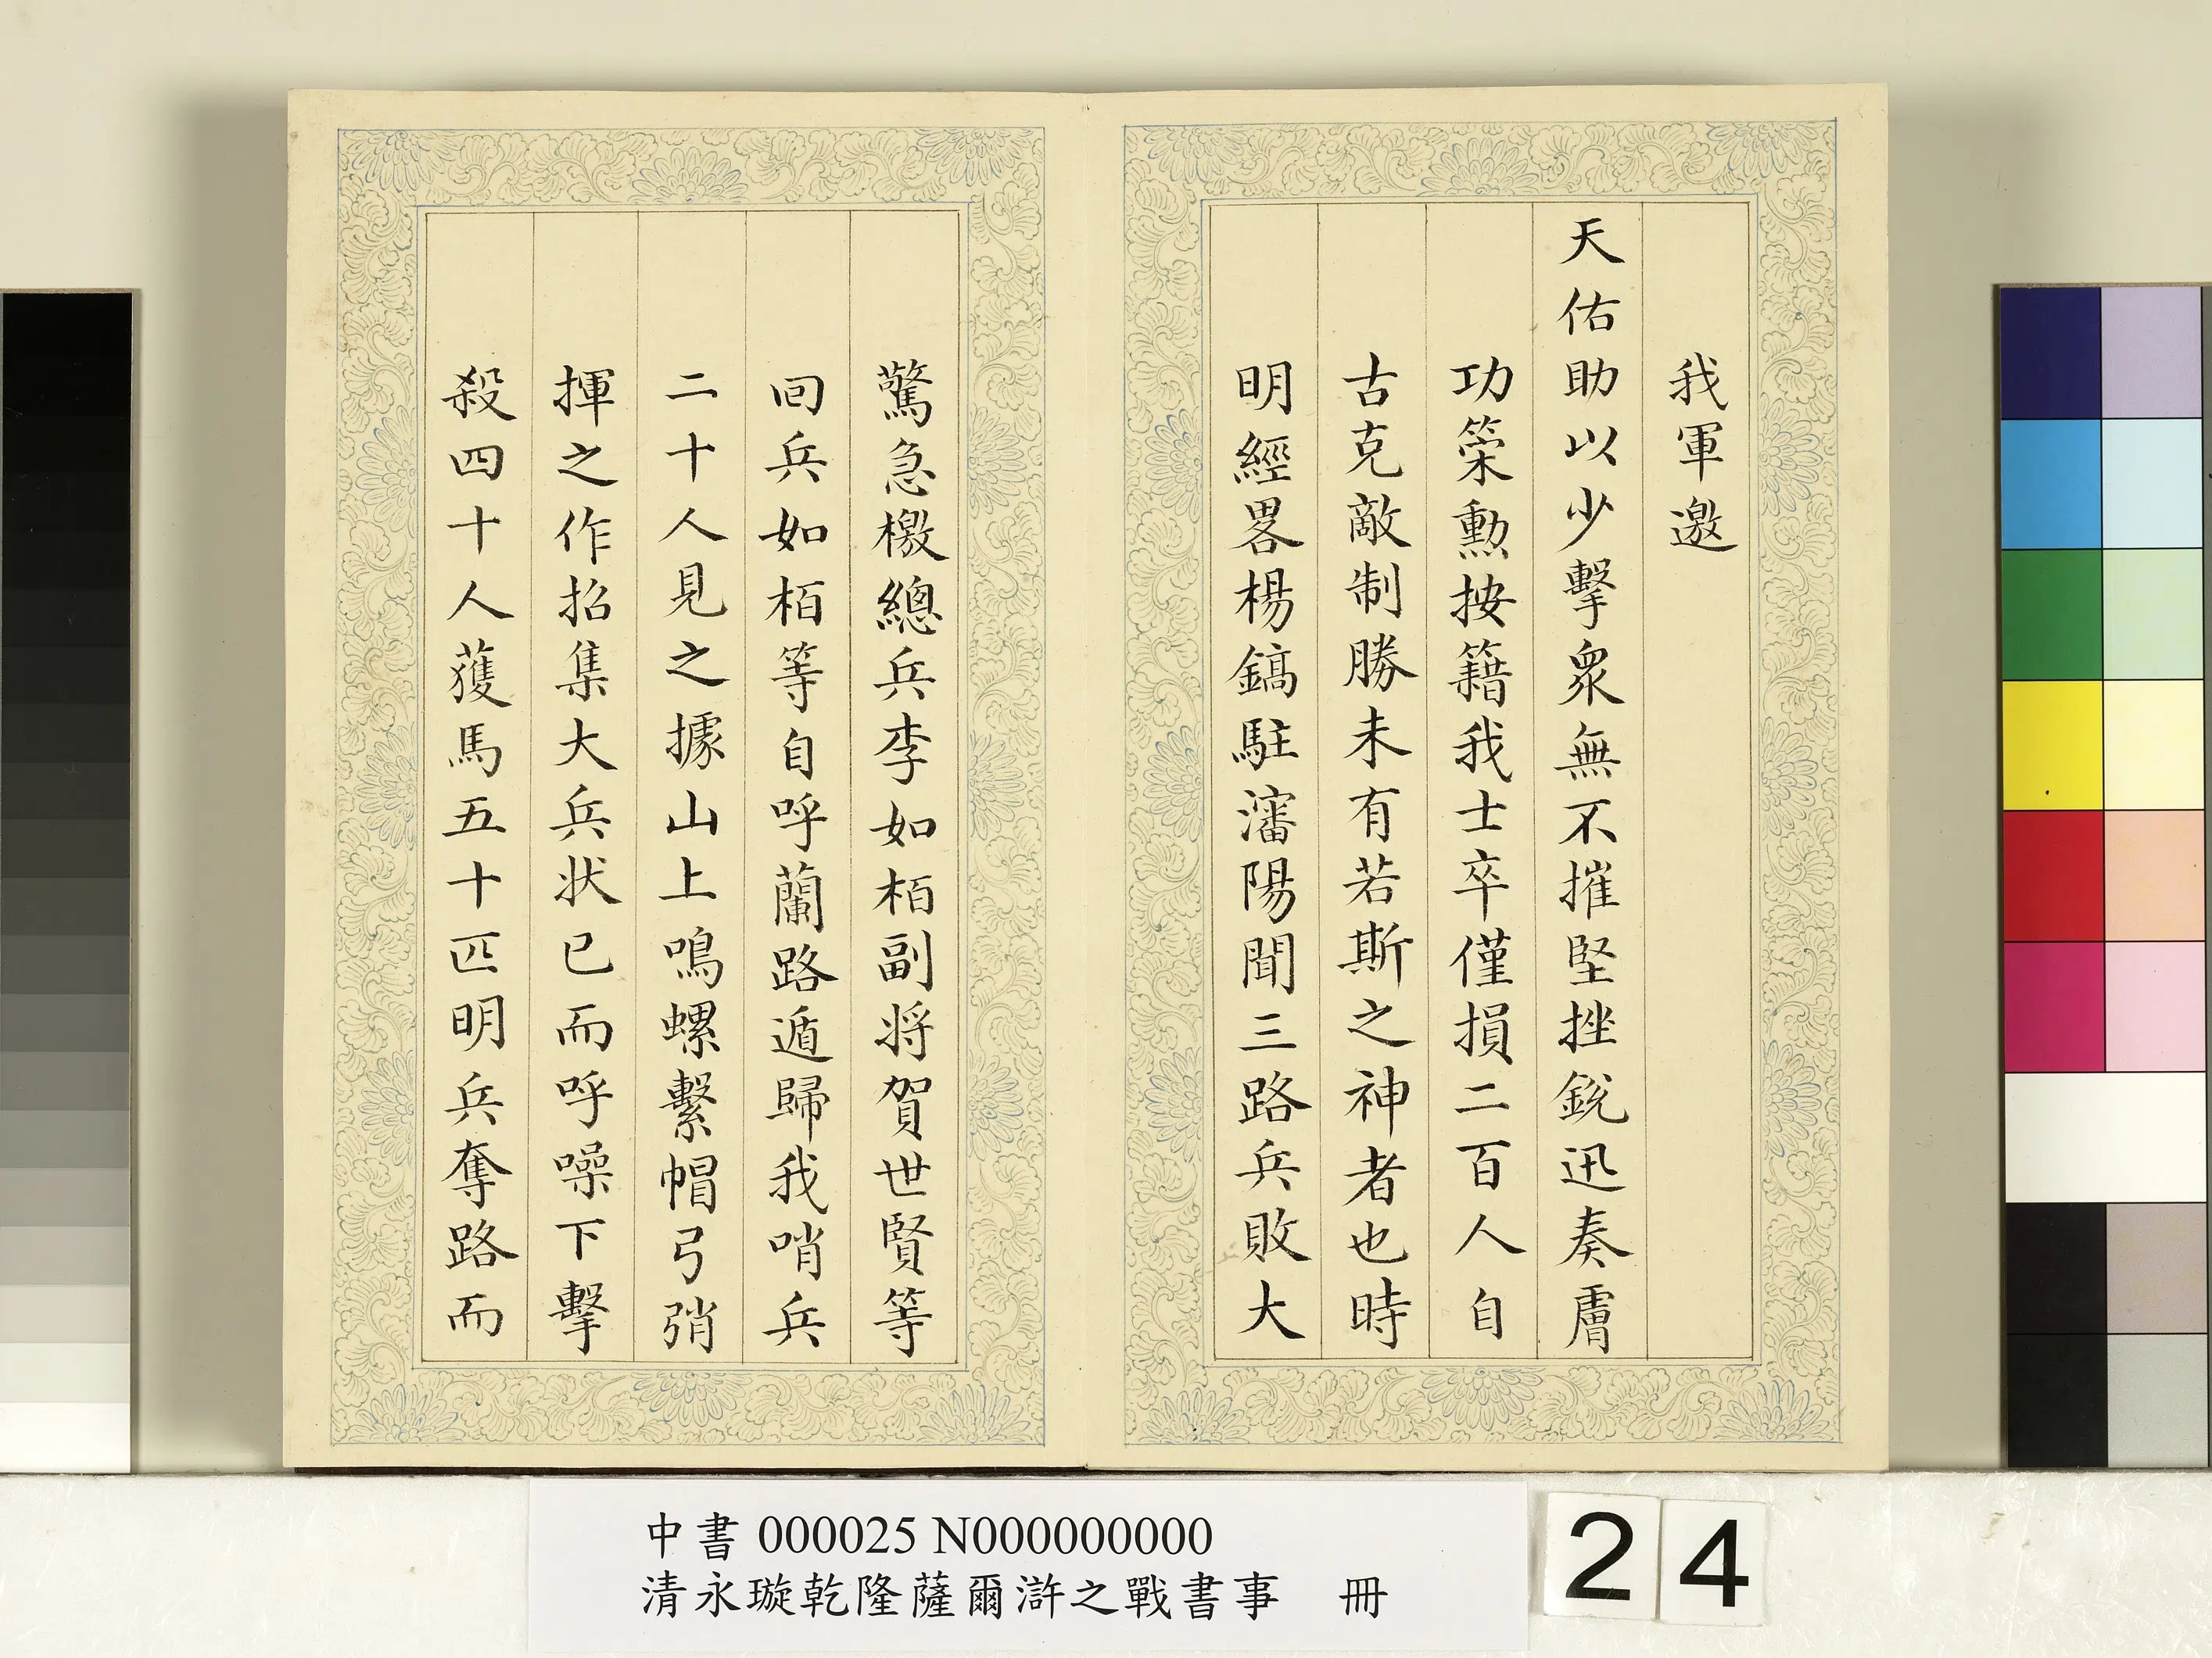 我軍邀
天佑助以少擊衆無不摧堅挫銳迅奏膚
功策勳按籍我士卒僅損二百人自
古克敵制勝未有若斯之神者也時
明經畧楊鎬駐瀋陽聞三路兵敗大
驚急檄總兵李如栢副將賀世賢等
囘兵如栢等自呼蘭路遁歸我哨兵
二十人見之據山上鳴螺繫帽弓弰
揮之作招集大兵狀已而呼噪下擊
殺四十人獲馬五十匹明兵奪路而
中書 000025 N000000000
清永璇乾隆薩爾滸之戰書事 冊
24